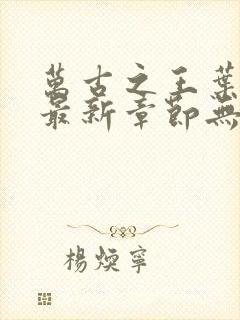 萬古之王葉
最新章節無
楊煐寧